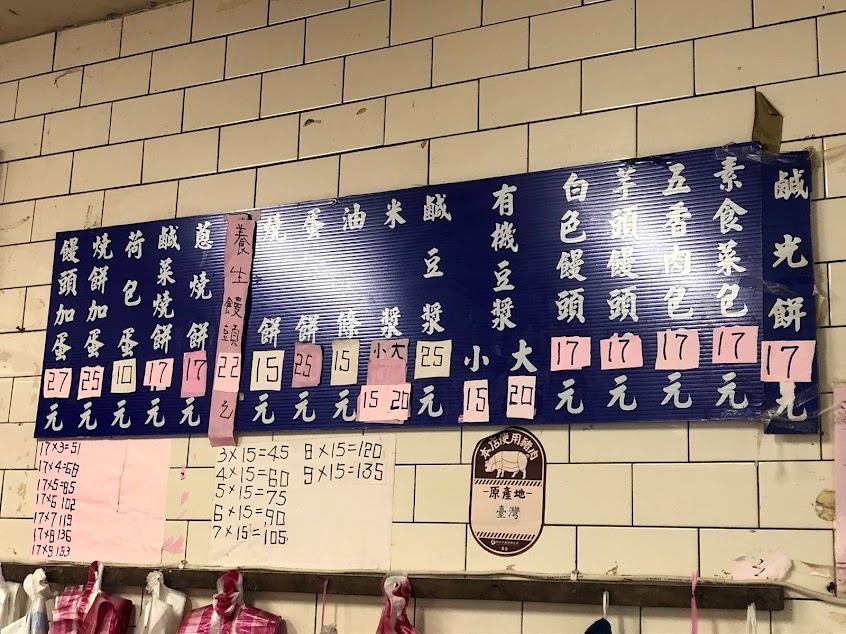 鹹光餅 17 元
素食菜包 17 元
五香肉包 17 元
芋頭饅頭 17 元
白色饅頭 17 元
有機豆漿 大 20 小 15
鹹豆漿 25 元
米漿 小 15 大 20
油條 15 元
蛋餅 25 元
燒餅 15 元
養生饅頭 22 元
蔥燒餅 17 元
鹹菜燒餅 17 元
荷包蛋 10 元
燒餅加蛋 25 元
饅頭加蛋 27 元
17×3=51
17×4=68
17×5=85
17×6 102
17×7 119
17×8 136
17×9 153
3×15=45
4×15=60
5×15=75
6×15=90
7×15=105
8×15=120
9×15=135
本店使用豬肉
-原產地-
臺灣